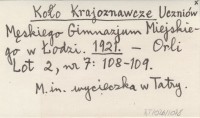 Koło Krajoznawcze Uczniów
Męskiego Gimnazjum Miejskie-
go w Łodzi. 1921. - Orli
Lot 2, nr 7: 108-109.
M. in. wycieczka w Tatry.